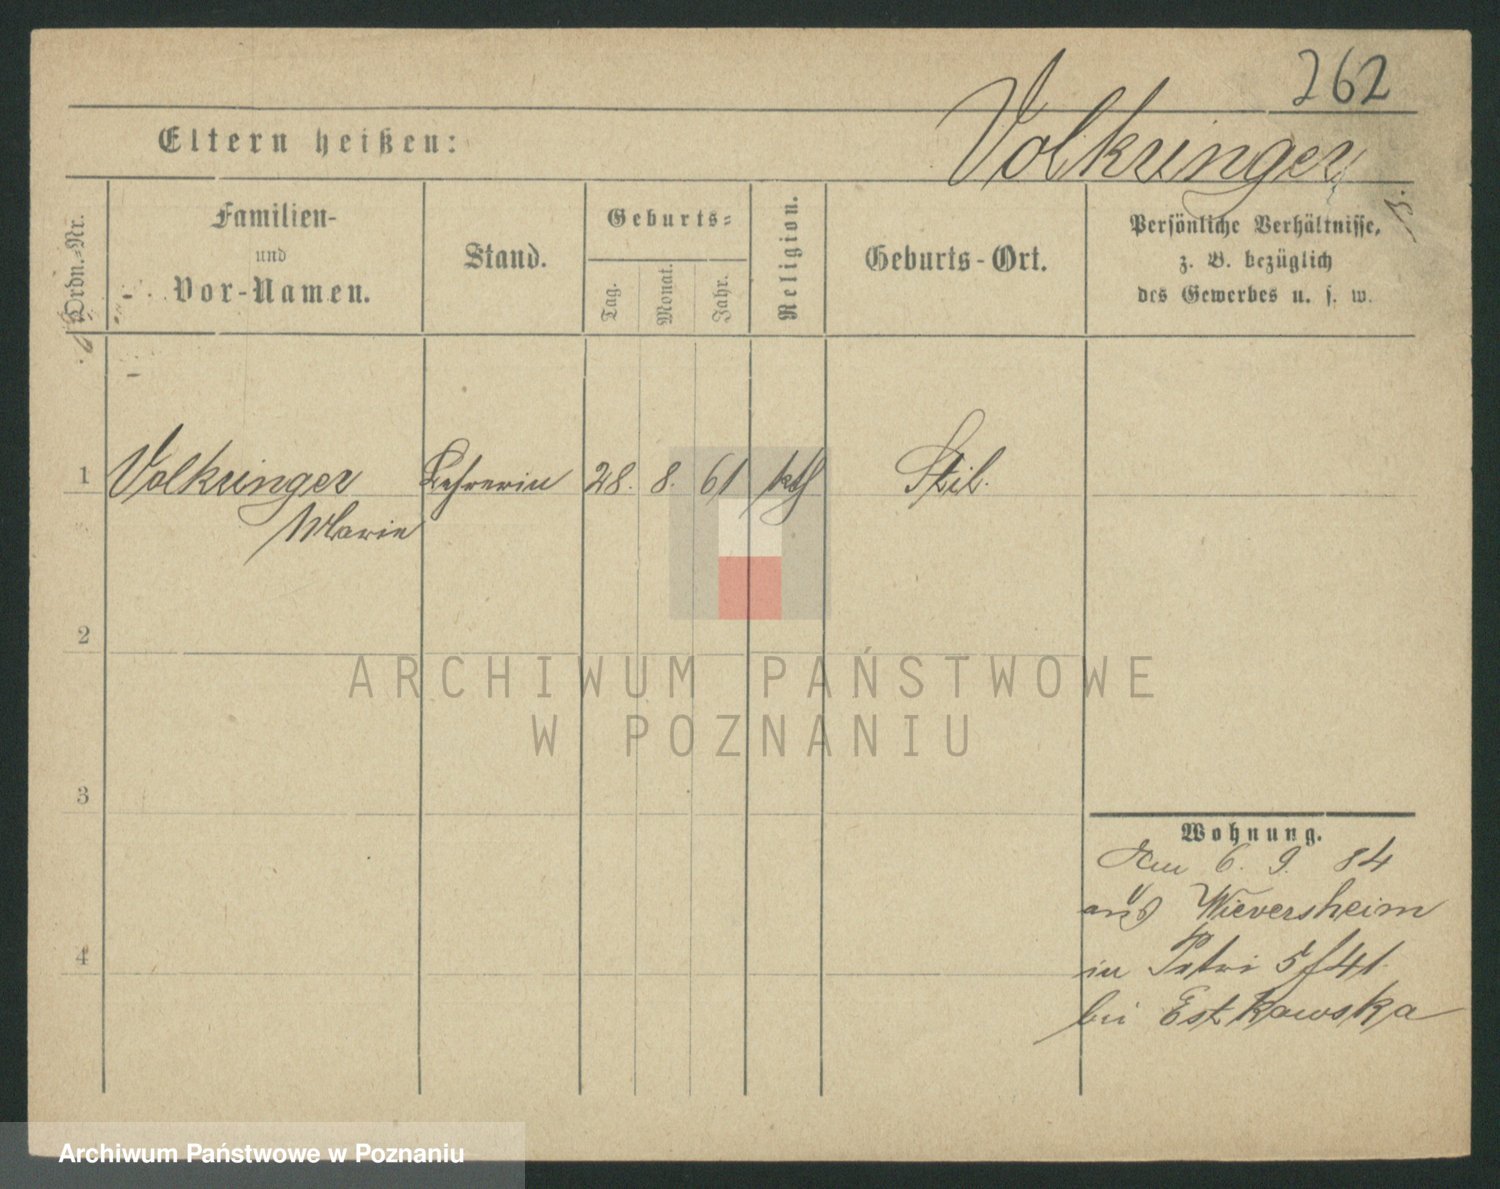 262
Volkringer
Eltern heißen:
Ordn.-Nr.
Familien-
und
Vor-Namen.
Stand.
Geburts-
Tag.
Monat.
Jahr.
Religion.
Geburts-Ort.
Persönliche Verhältnisse,
z. B. bezüglich
des Gewerbes u. s. w.
1 Volkringer Lehrerin 28. 8. 61 kth
Marie
2
3
4
Wohnung.
Am 6. 9. 84
aus Wieversheim
in Petri 5/41.
bei Estkowska
ARCHIWUM PAŃSTWOWE
W POZNANIU
Archiwum Państwowe w Poznaniu